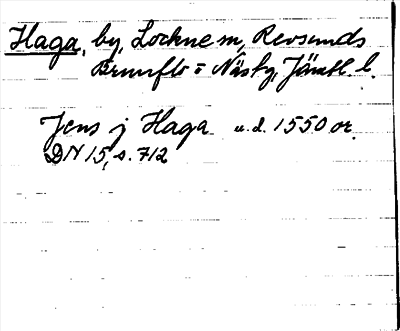 Haga, by, Lockne sn, Revsunds
Brunflo o Näs tg, Jämtl. l.
Jens j Haga u.d. 1550 or.
DN 15, s. 712